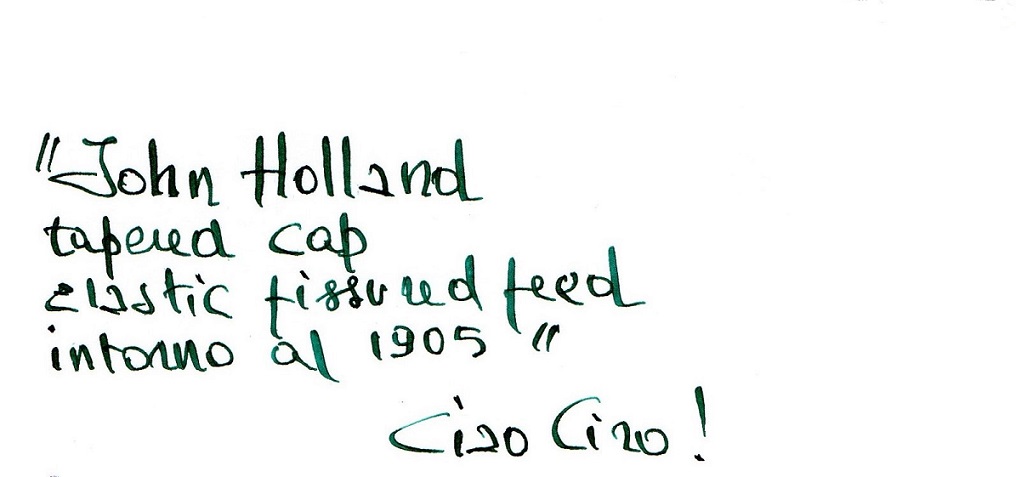 "John Holland
tapered cap
elastic fissured feed
intorno al 1905"
Ciao Ciao!